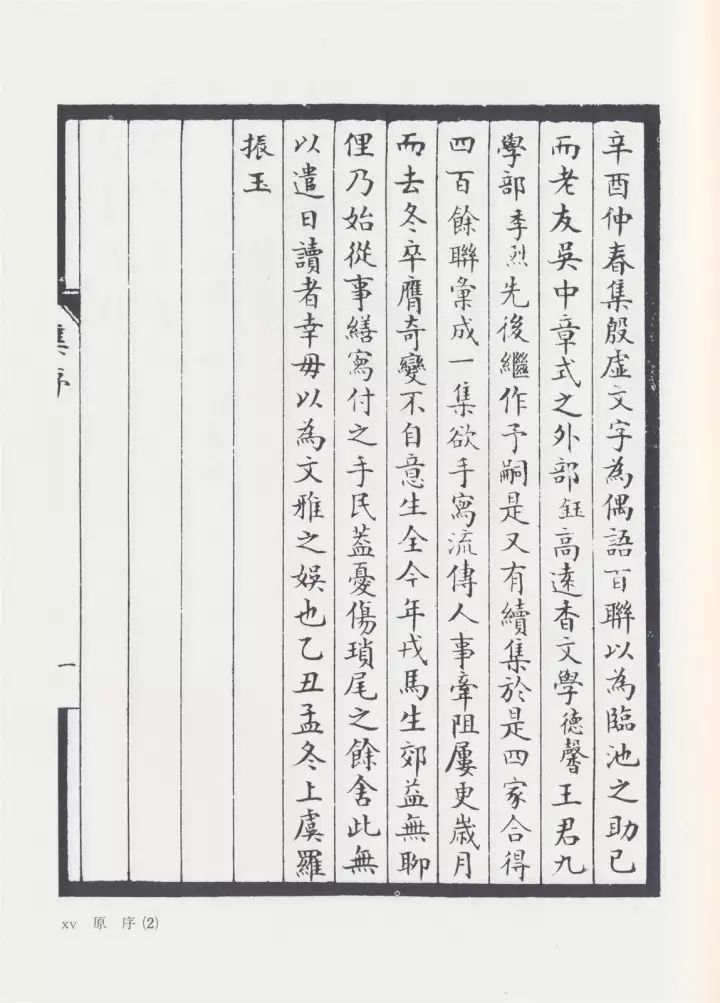 辛酉仲春集殷虛文字為偶語百聯以為臨池之助已
而老友吳中章式之外部鈺高遠香文學德馨王君九
學部季烈先後繼作予嗣是又有續集於是四家合得
四百餘聯彙成一集欲手寫流傳人事牽阻屢更歲月
而去冬卒膺奇變不自意生全今年戎馬生郊益無聊
俚乃始從事繕寫付之手民蓋憂傷瑣尾之餘舍此無
以遣日讀者幸毋以為文雅之娛也乙丑孟冬上虞羅
振玉
集序
一
xv 原 序(2)